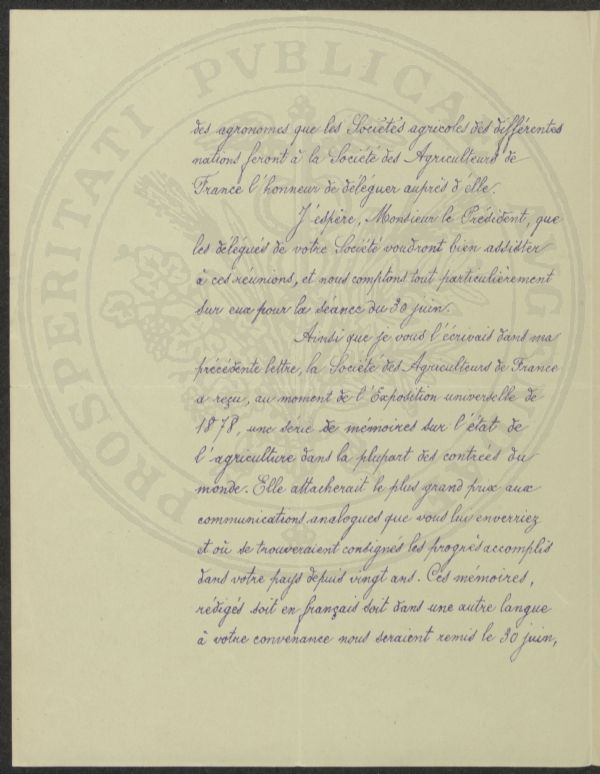 PROSPERITATI PVBLICAE
des agronomes que les Sociétés agricoles des différentes
nations feront à la Société des Agriculteurs de
France l'honneur de déléguer auprès d'elle.
J'espère, Monsieur le Président, que
les délégués de votre Société voudront bien assister
à ces réunions, et nous comptons tout particulièrement
sur eux pour la séance du 30 juin.
Ainsi que je vous l'écrivais dans ma
précédente lettre, la Société des Agriculteurs de France
a reçu, au moment de l'Exposition universelle de
1878, une série de mémoires sur l'état de
l'agriculture dans la plupart des contrées du
monde. Elle attacherait le plus grand prix aux
communications analogues que vous lui enverriez
et où se trouveraient consignés les progrès accomplis
dans votre pays depuis vingt ans. Ces mémoires,
rédigés soit en français soit dans une autre langue
à votre convenance nous seraient remis le 30 juin,